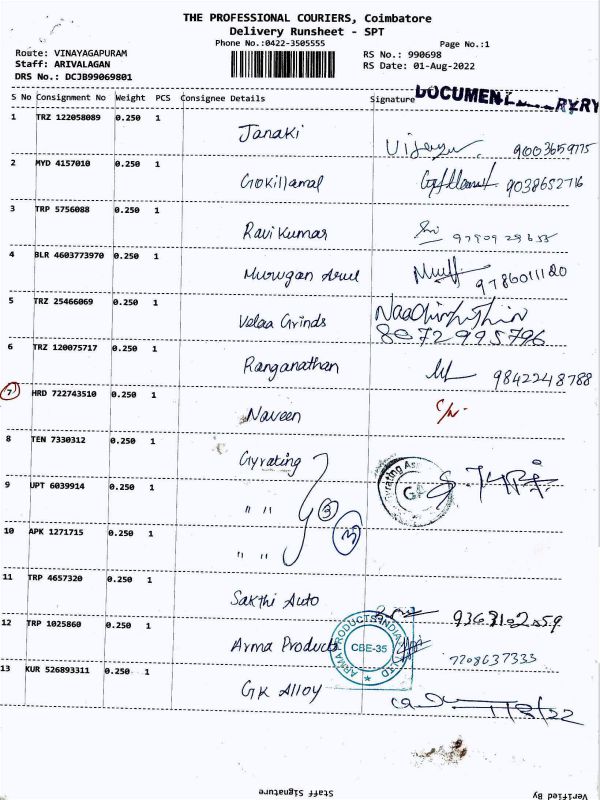 THE PROFESSIONAL COURIERS, Coimbatore
Delivery Runsheet - SPT
Phone No.:0422-3505555
Page No.:1
Route: VINAYAGAPURAM
RS No.: 990698
Staff: ARIVALAGAN
RS Date: 01-Aug-2022
DRS No.: DCJB99069801
S No Consignment No Weight PCS Consignee Details Signature
1 TRZ 122058089 0.250 1
Janaki 9003659775
2 MYD 4157010 0.250 1
Gokillamal 9038652716
3 TRP 5756088 0.250 1
Ravi Kumar
4 BLR 4603773970 0.250 1
Murugan Arul 9786011120
5 TRZ 25466069 0.250 1
Velaa Grinds
8072995796
6 TRZ 120075717 0.250 1
Ranganathan 9842248788
7 HRD 722743510 0.250 1
Naveen
8 TEN 7330312 0.250 1
Gyrating
9 UPT 6039914 0.250 1
" " 3
10 APK 1271715 0.250 1
" "
11 TRP 4657320 0.250 1
Sakthi Auto
12 TRP 1025860 0.250 1
Arma Products ARMA PRODUCTS INDIA CBE-35 7208637333
13 KUR 526893311 0.250 1
GK Alloy 1/8/22
Staff Signature
Verified By